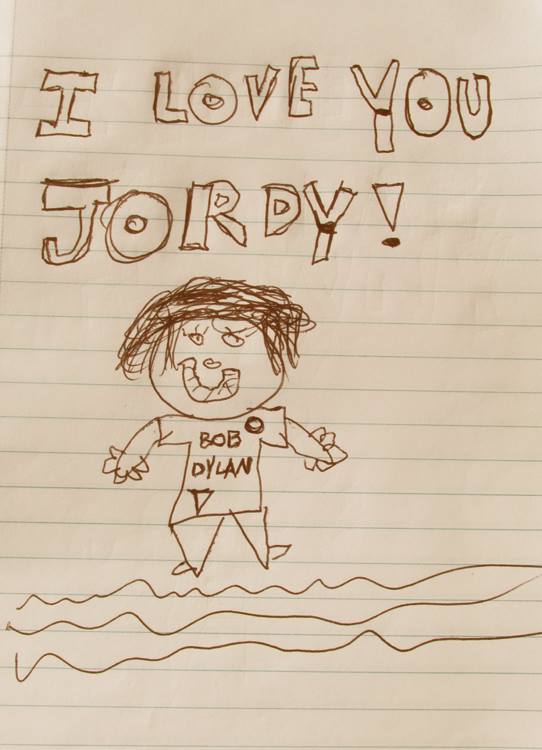 I LOVE YOU
JORDY!
BOB
DYLAN